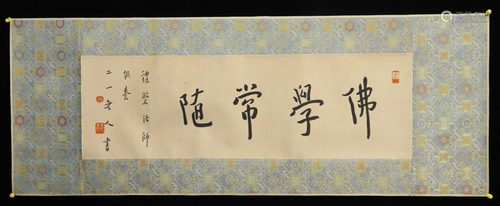 佛學常隨
法師
供養
二一老人書